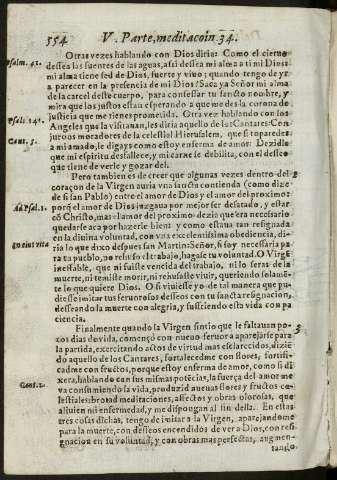 554 V. Parte, meditacoin 34.
Otras vezes hablando con Dios diria: Como el cieruo
Psalm. 41. dessea las fuentes de las aguas, assi dessea mi alma a ti mi Dios:
mi alma tiene sed de Dios, fuerte y viuo; quando tengo de yr
a parecer en la presencia de mi Dios? Saca ya Señor mi alma
de la carcel deste cuerpo, para confessar tu santo nombre, y
mira que los justos estan esperando a que me des la corona de
Psal. 141. justicia que me tienes prometida. Otra vez hablando con los
Angeles que la visitauan, les diria aquello de los Cantares: Con
Cant. 5. juroos moradores de la celestial Hierusalem, que si toparedes
a mi amado, le digays como estoy enferma de amor: Dezidle
que mi espiritu desfallece, y mi carne se debilita, con el desseo
que tiene de verle y gozar del.
Pero tambien es de creer que algunas vezes dentro del 2
coraçon de la Virgen auria vna sancta contienda (como dize
Ad Phil. 1. de si san Pablo) entre el amor de Dios y el amor del proximo:
porque el amor de Dios juzgaua por mejor ser desatado, y estar
cõ Christo, mas el amor del proximo dezia que era necessario
quedarse aca por hazerle bien: y como estaua tan resignada
en la diuina voluntad, con vna excelentissima obediencia, di-
ria lo que dixo despues san Martin: Señor, si soy necessaria pa-
ra tu pueblo, no rehuso el trabajo, hagase tu voluntad. O Virgẽ
inefable, que ni fuiste vencida del trabajo, ni lo seras de la
muerte, ni temiste morir, ni rehusaste viuir, queriendo solamẽ-
te lo que quiere Dios. O si viuiesse yo de tal manera que pu-
diesse imitar tus feruorosos desseos con tu sancta resignacion,
desseando la muerte con alegria, y sufriendo esta vida con pa
ciencia.
Finalmente quando la Virgen sintio que le faltauan po- 3
cos dias de vida, començò con nueuo feruor a aparejarse para
la partida, exercitando actos de virtud mas esclarecidos, diziẽ
do aquello de los Cantares, fortalecedme con flores, fortifi-
cadme con fructos, porque estoy enferma de amor, como si di
Cant. 2. xera, hablando con sus mismas potẽcias, la fuerça del amor me
va consumiendo la vida, produzid nueuas flores y fructos ce-
lestiales: brotad meditaciones, affectos y obras olorosas, que
aliuien mi enfermedad, y me dispongan al fin della. En estas
tres cosas dichas, tengo de imitar a la Virgen, aparejandome
para la muerte, con desseos encendidos de ver a Dios, con resi
gnacion en su voluntad; y con obras mas perfectas, augmen-
tando